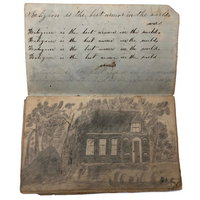 Religion is the best armor in the world,
Religion is the best armor in the world,
Religion is the best armor in the world,
Religion is the best armor in the world,
Religion is the best armor in the
world